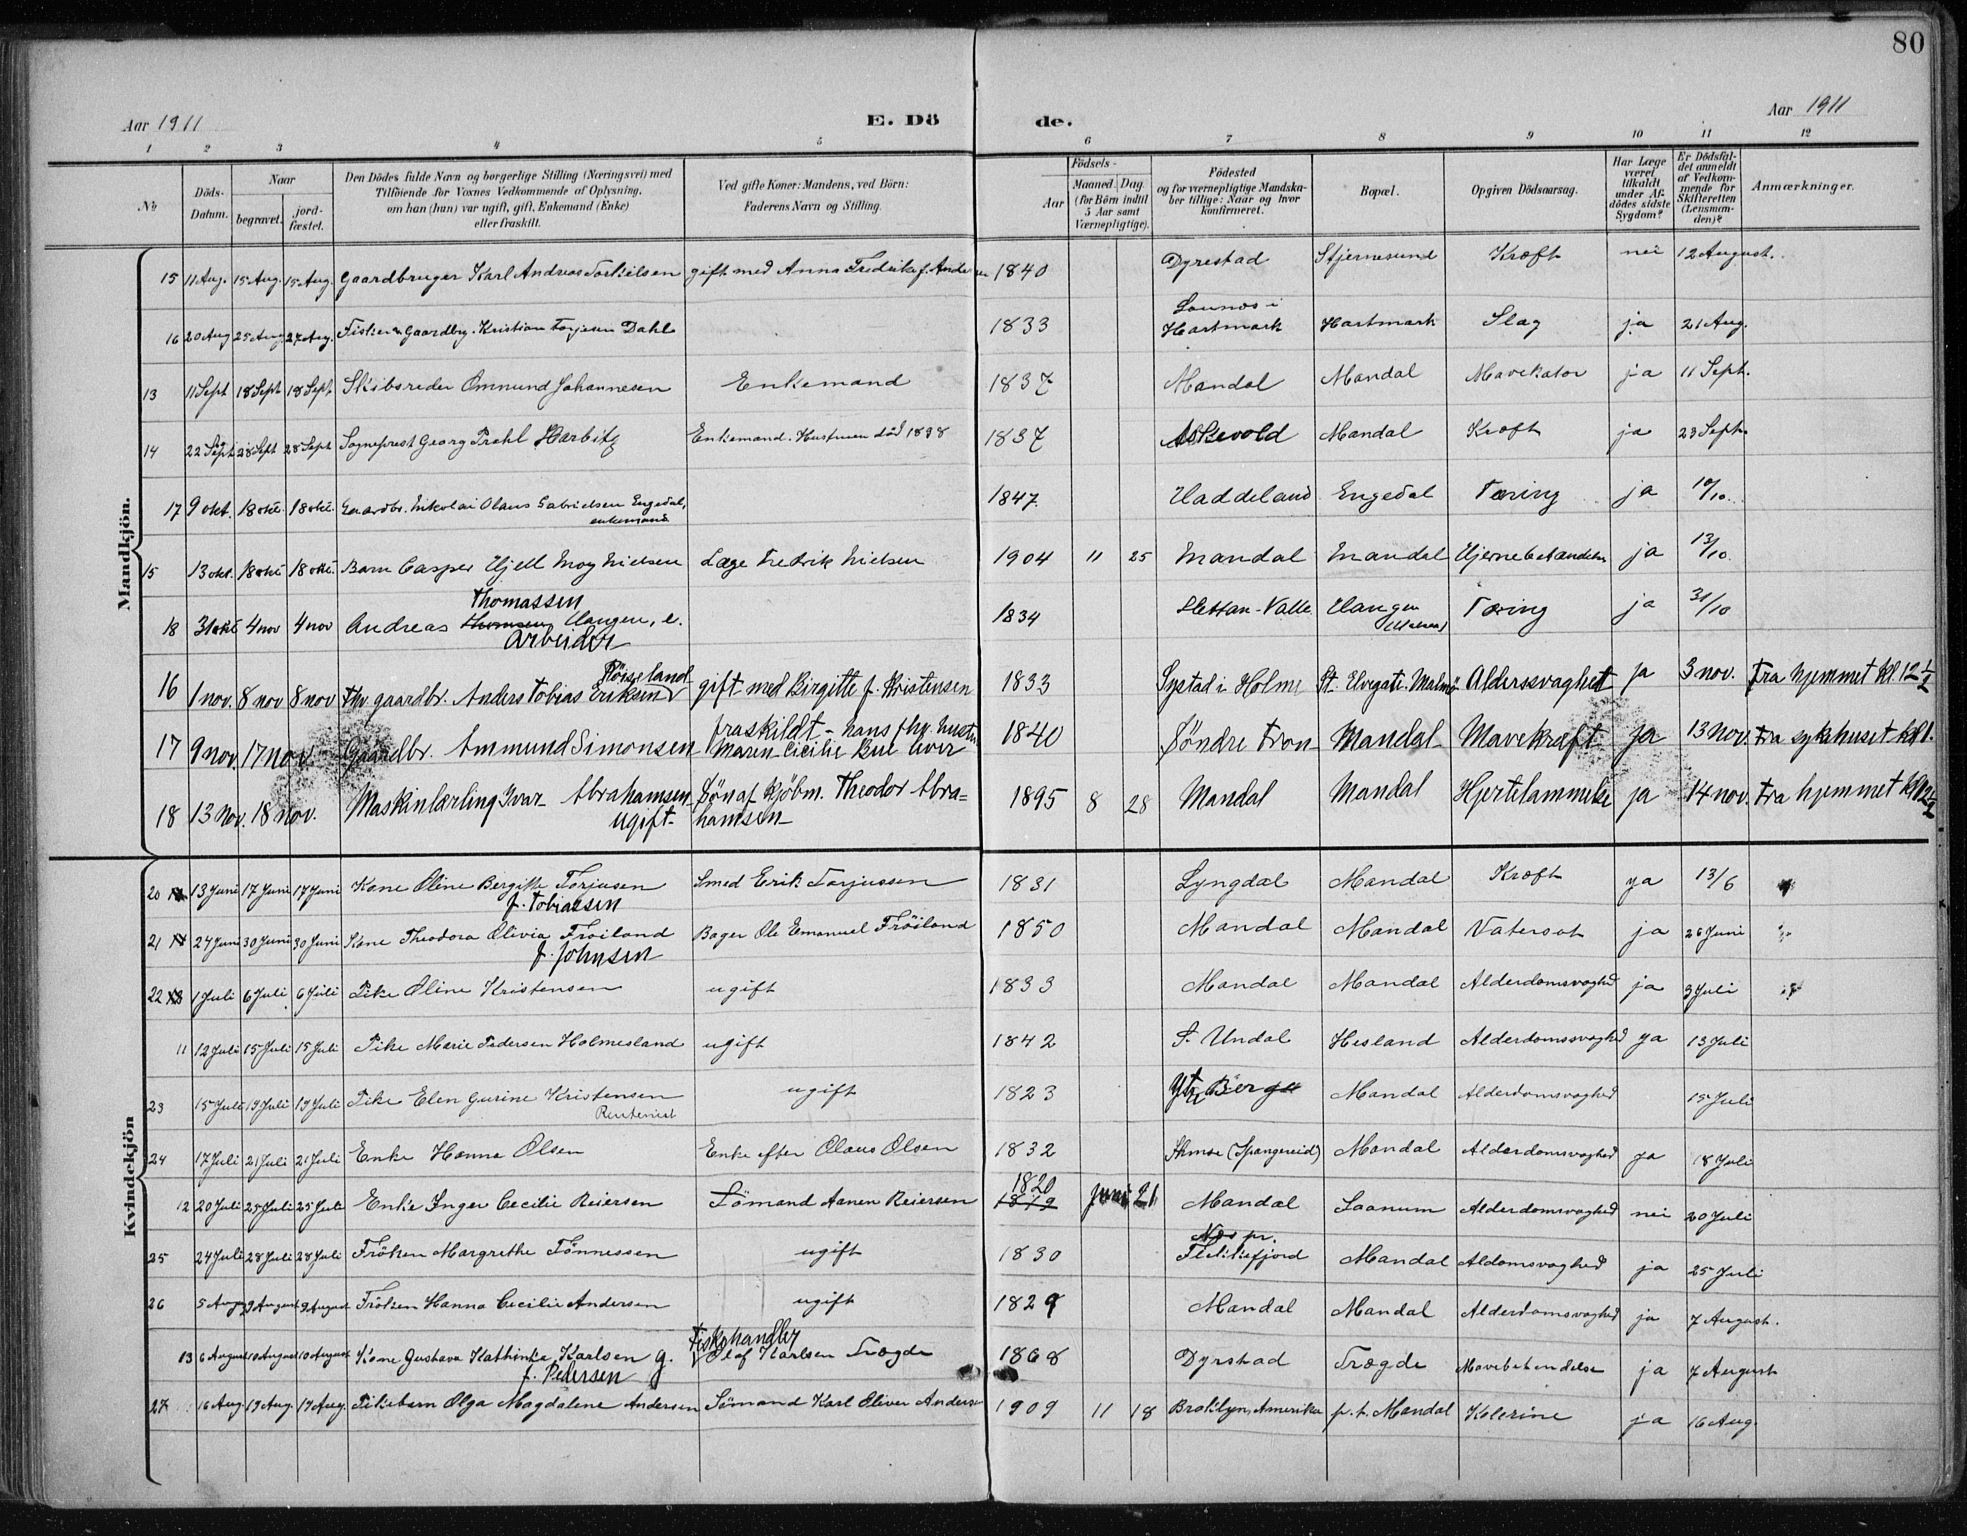 80
Aar 1911
E. Dö de.
Aar 1911
1 2 3 4 5 6 7 8 9 10 11 12
No
Döds-Datum.
Naar
begravet.
jordfæstet.
Den Dödes fulde Navn og borgerlige Stilling (Næringsvei) med
Tilföiende for Voxnes Vedkommende af Oplysning,
om han (hun) var ugift, gift, Enkemand (Enke)
eller fraskilt.
Ved gifte Koner: Mandens, ved Börn:
Faderens Navn og Stilling.
Födsels-
Aar
Maaned. Dag.
(for Börn indtil
5 Aar samt
Værnepligtige).
Födested
og for værnepligtige Mandska-
ber tillige: Naar og hvor
konfirmeret.
Bopæl.
Opgiven Dödsaarsag.
Har Læge
været
tilkaldt
under Af-
dödes sidste
Sygdom?
Er Dödsfal-
det anmeldt
af Vedkom-
mende for
Skifteretten
(Lensman-
den)?
Anmærkninger.
Mandkjön.
15 11 Aug. 15 Aug. 15 Aug. Gaardbruger Karl Andreas Torkielsen gift med Anna Fredrikke f. 1840 Dyrestad Stjernesund Kræft nei 12 August.
16 20 Aug 25 Aug 27 Aug. Fisker & Gaardbr. Kristian Torjesen Dahl 1833 i Hartmark Hartmark Slag ja 21 Aug.
13 11 Sept 18 Sept 18 Sept Skibsreder Ommund Johannesen Enkemand 1837 Mandal Mandal Mavekatar ja 11 Sept.
14 22 Sept 28 Sept 28 Sept Sogneprest Georg Prahl Harbitz Enkemand. Hustruen død 1898 1837 Askevold Mandal Kræft ja 23 Sept.
17 9 okt. 18 okt. 18 okt. Gaardbr. Nikolai Olaus Gabrielsen Engedal, enkemand 1847. Haddeland Engedal Tæring ja 10/10.
15 13 okt. 18 okt 18 okt. Barn Casper Kjell Moy Nielsen Læge Fredrik Nielsen 1904 11 25 Mandal Mandal Hjernebetændelse ja 13/10.
18 31 okt 4 nov 4 nov Andreas Thomsen Thomassen Haugen, e. Arbeider 1834 Valle Haugen Tæring ja 31/10
16 1 nov. 8 nov 8 nov fhv gaardbr. Anders Tobias Eriksen Röiseland gift med Birgitte f. Kristensen 1833 Systad i Holme St. Elvegate. Malmö Alderssvaghet ja 3 nov. Fra hjemmet kl. 12 1/2
17 9 nov. 17 nov. Gaardbr. Ammund Simonsen fraskildt - hans fhv. hustru Maren Cecilie Bue lever 1840 Söndre Fron Mandal Mavekræft ja 13 Nov. Fra sykehuset kl 1.
18 13 Nov. 18 nov. Maskinlærling Ivar Abrahamsen ugift Sön af kjöbm. Theodor Abrahamsen 1895 8 28 Mandal Mandal Hjertelammelse ja 14 nov. Fra hjemmet kl 12 1/2
Kvindekjön
20 13 Juni 17 Juni 17 Juni Kone Oline Bergitte Torjusen f. Tobiassen Smed Erik Torjussen 1831 Lyngdal Mandal Kræft ja 13/6
21 24 Juni 30 Juni 30 Juni Kone Theodora Olivia Fröiland f. Johnsen Bager Ole Emanuel Fröiland 1850 Mandal Mandal Vatersot ja 26 Juni
22 1 Juli 6 Juli 6 Juli Pike Oline Kristensen ugift 1833 Mandal Mandal Alderdomsvaghed ja 3 Juli
11 12 Juli 15 Juli 15 Juli Pike Marie Pedersen Holmesland ugift 1842 S. Undal Hesland Alderdomssvaghed ja 13 Juli
23 15 Juli 19 Juli 19 Juli Pike Elen Gurine Kristensen Rentenist ugift 1823 Ytre Berge Mandal Alderdomsvaghed 15 Juli
24 17 Juli 21 Juli 21 Juli Enke Hanna Olsen Enke efter Olaus Olsen 1832 (Spangereid) Mandal Alderdomsvaghed ja 18 Juli
12 20 Juli 25 Juli 25 Juli Enke Inger Cecilie Reiersen Sömand Aanen Reiersen 1819 1820 Juni 21 Mandal Saanum Alderdomsvaghed nei 20 Juli
25 24 Juli 28 Juli 28 Juli Fröken Margrethe Tönnessen ugift 1830 Næs pr. Flekkefjord Mandal Aldomsvaghed ja 25 Juli
26 5 Aug 9 August 9 August Fröken Hanna Cecilie Andersen ugift 1829 Mandal Mandal Alderdomsvaghed ja 7 August.
13 6 August 10 August 10 August Kone Gustava Kathinka Karlsen g. f. Pedersen Fiskehandler Olaf Karlsen Trægde 1868 Dyrstad Trægde Mavebetendelse ja 7 August
27 16 Aug 19 Aug. 19 Aug. Pikebarn Olga Magdalene Andersen Sömand Karl Oliver Andersen 1909 11 18 Broklyn, Amerika p.t. Mandal Kolerine ja 16 Aug.